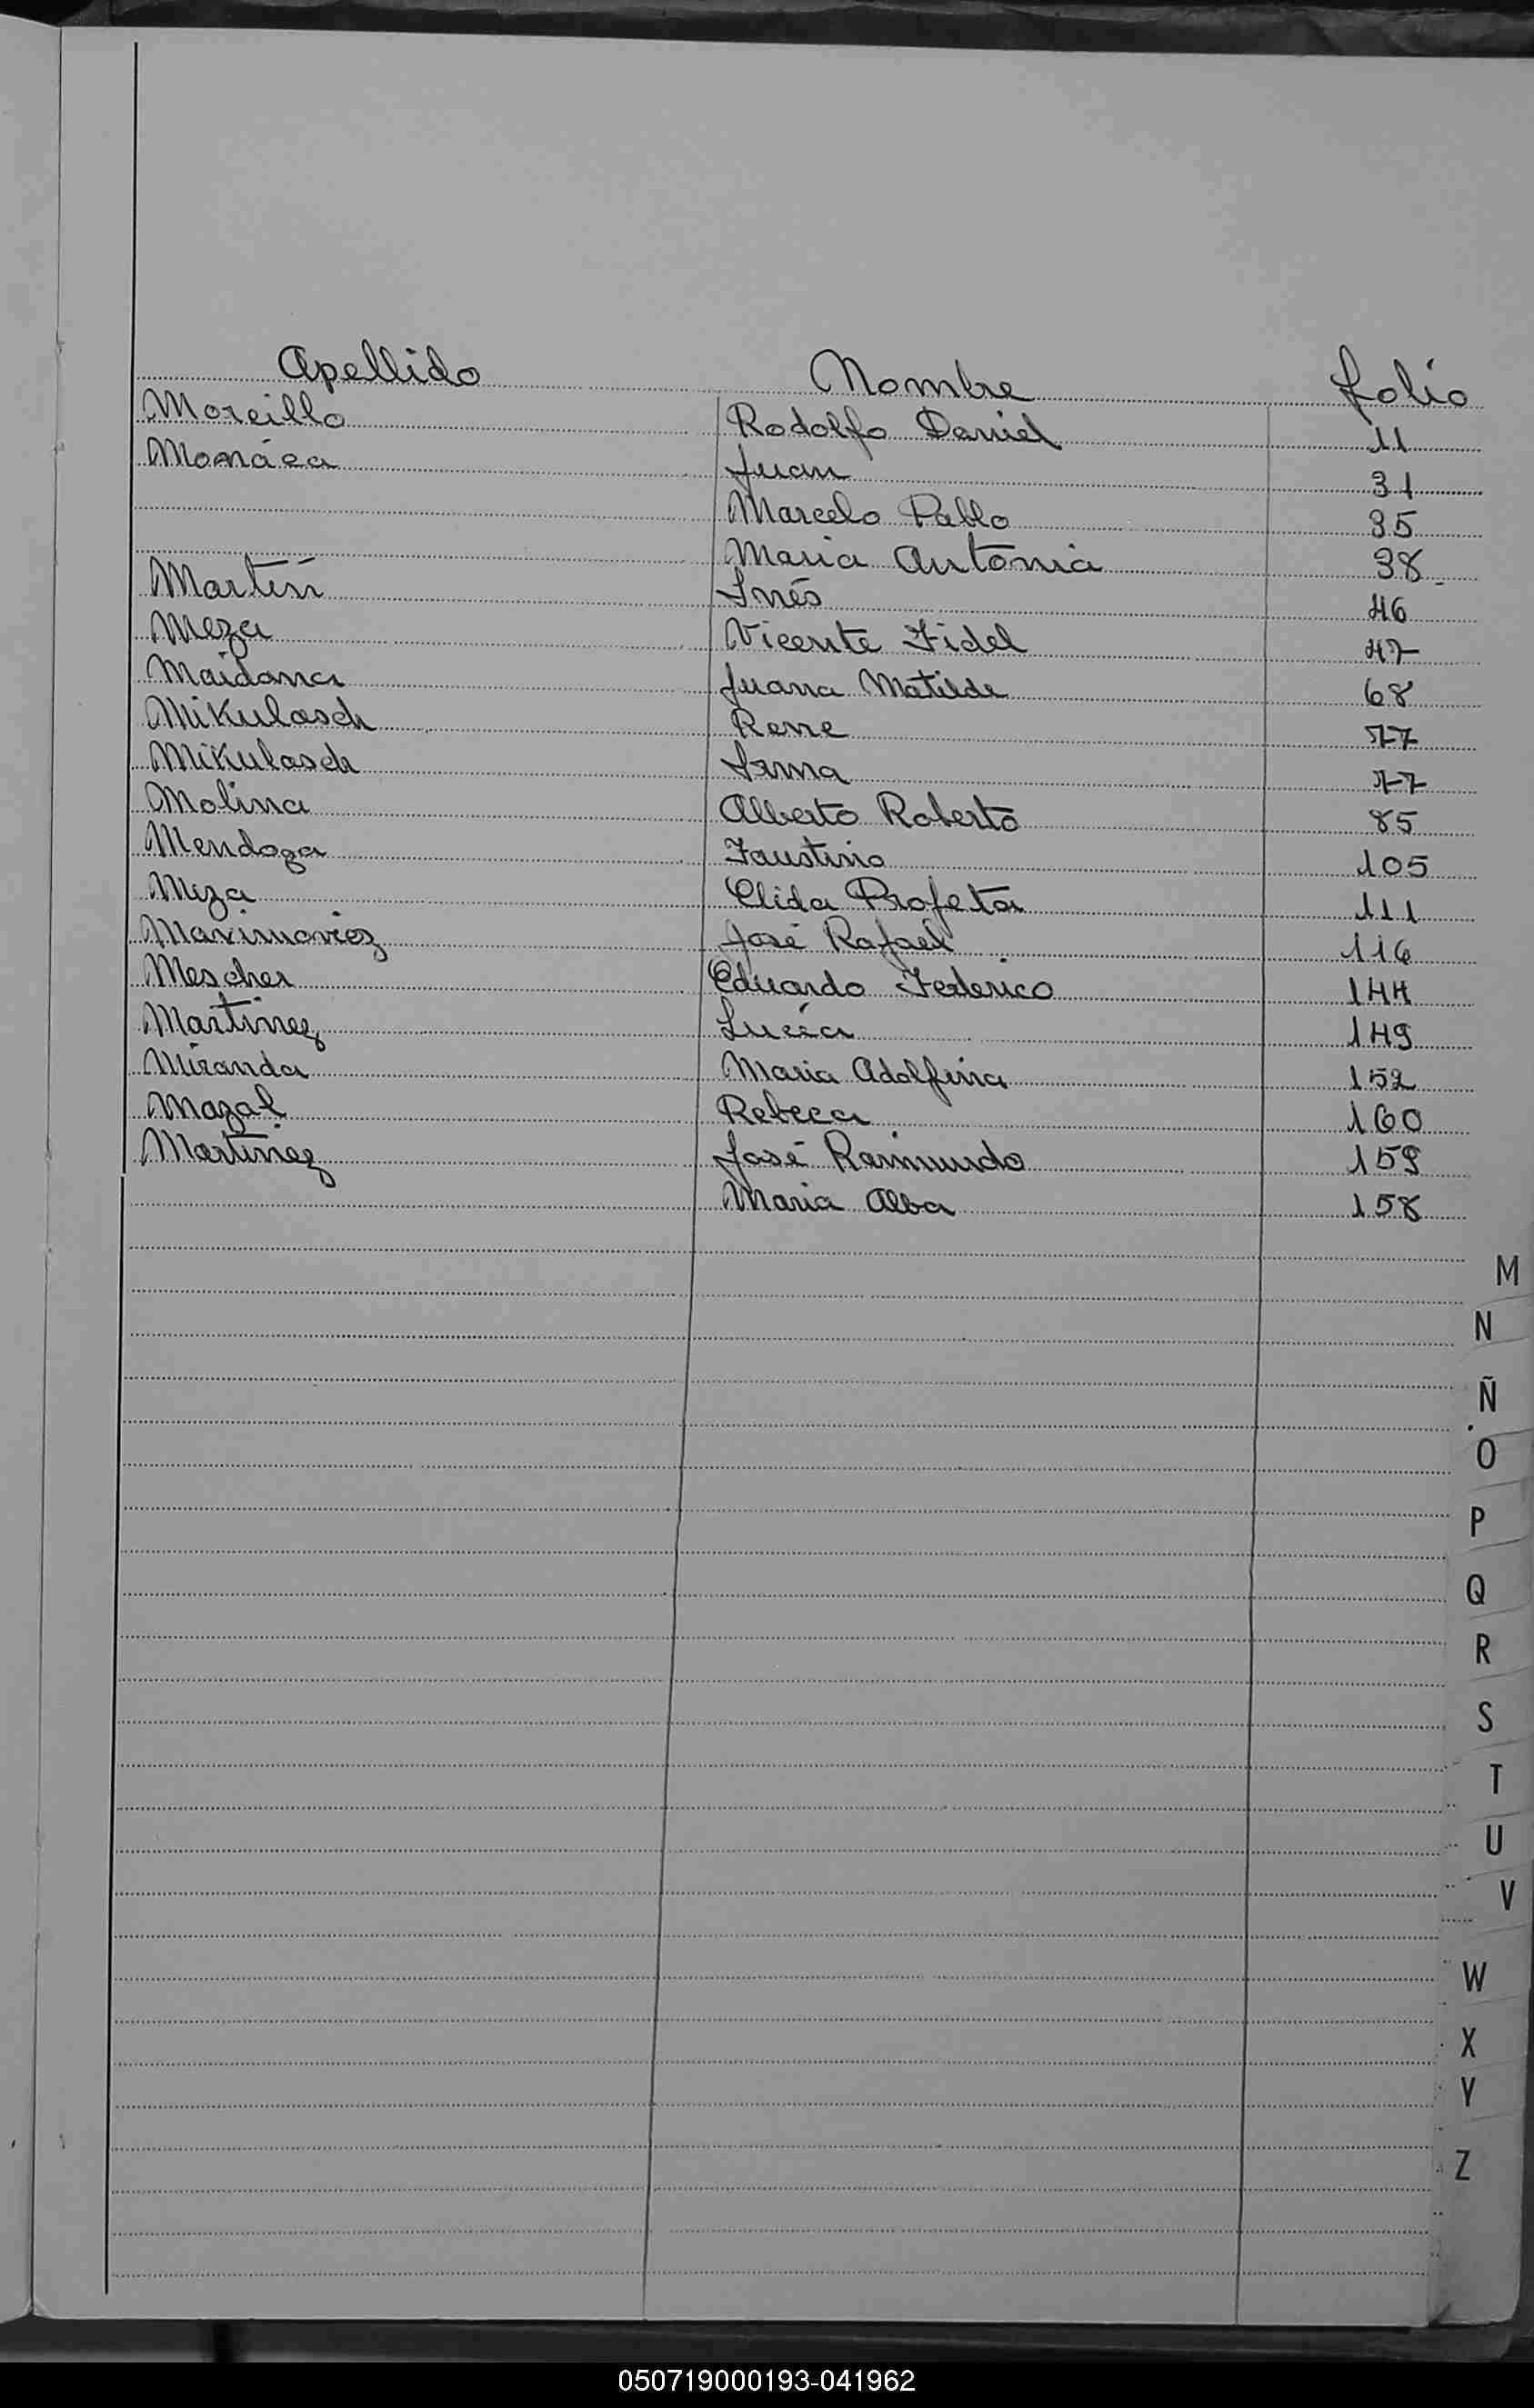 Apellido Nombre folio
Morcillo Rodolfo Daniel 11
Monáca Juan 31
Marcelo Pablo 35
Maria Antonia 38
Martín Inés 46
Meza Vicente Fidel 47
Maidana Juana Matilde 68
Mikulasch Rene 77
Mikulasch Irma 77
Molina Alberto Roberto 85
Mendoza Faustino 105
Meza Elida Profeta 111
Maximovicz José Rafael 116
Mescher Eduardo Federico 144
Martinez Lucía 149
Miranda Maria Adolfina 152
Mazal Rebeca 160
Martinez José Raimundo 159
Maria Alba 158
M
N
Ñ
O
P
Q
R
S
T
U
V
W
X
Y
Z
050719000193-041962